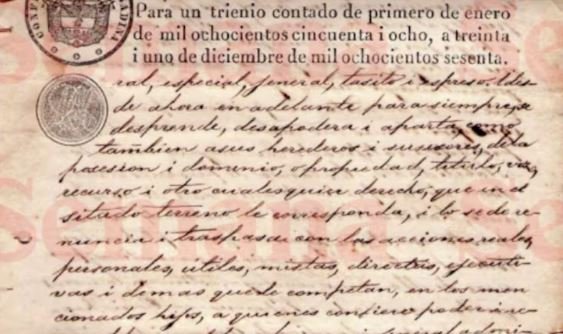 Para un trienio contado de primero de enero
de mil ochocientos cincuenta i ocho, a treinta
i uno de diciembre de mil ochocientos sesenta.
ral, especial, jeneral, tasito i espreso. I des-
de ahora en adelante para siempre, se
desprende, desapodera i aparta, como
tambien a sus herederos i susesores, de la
posesion i dominio, o propiedad, titulo, voz,
recurso i otro cualesquier derecho, que en el
sitado terreno le corresponda, i lo sede re-
nuncia i traspasa con las acciones reales,
personales, utiles, mistas, directas, ejecuti-
vas i demas que le competen, en los men-
cionados hijos, a quienes confiere poder irre-